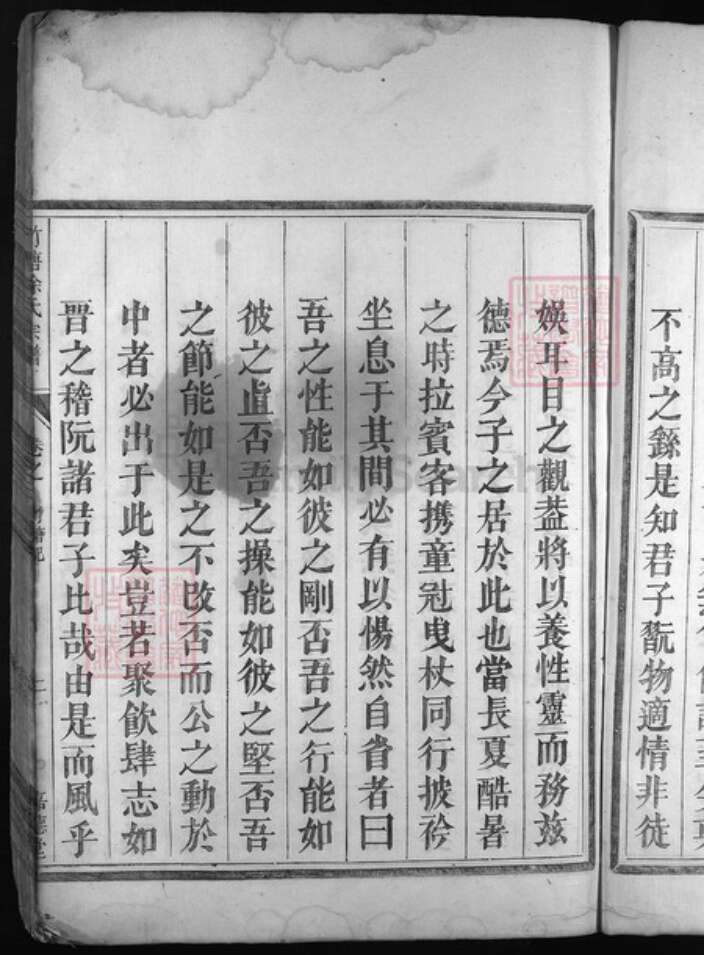 不高之繇是知君子翫物適情非徒
娛耳目之觀葢將以養性靈而務兹
德焉今子之居於此也當長夏酷暑
之時拉賓客携童冠曳杖同行披衿
坐息于其間必有以惕然自省者曰
吾之性能如彼之剛否吾之行能如
彼之直否吾之操能如彼之堅否吾
之節能如是之不改否而公之動於
中者必出于此矣豈若聚飲肆志如
晋之稽阮諸君子比哉由是而風乎
竹塘徐氏宗譜 卷之 嘉德堂